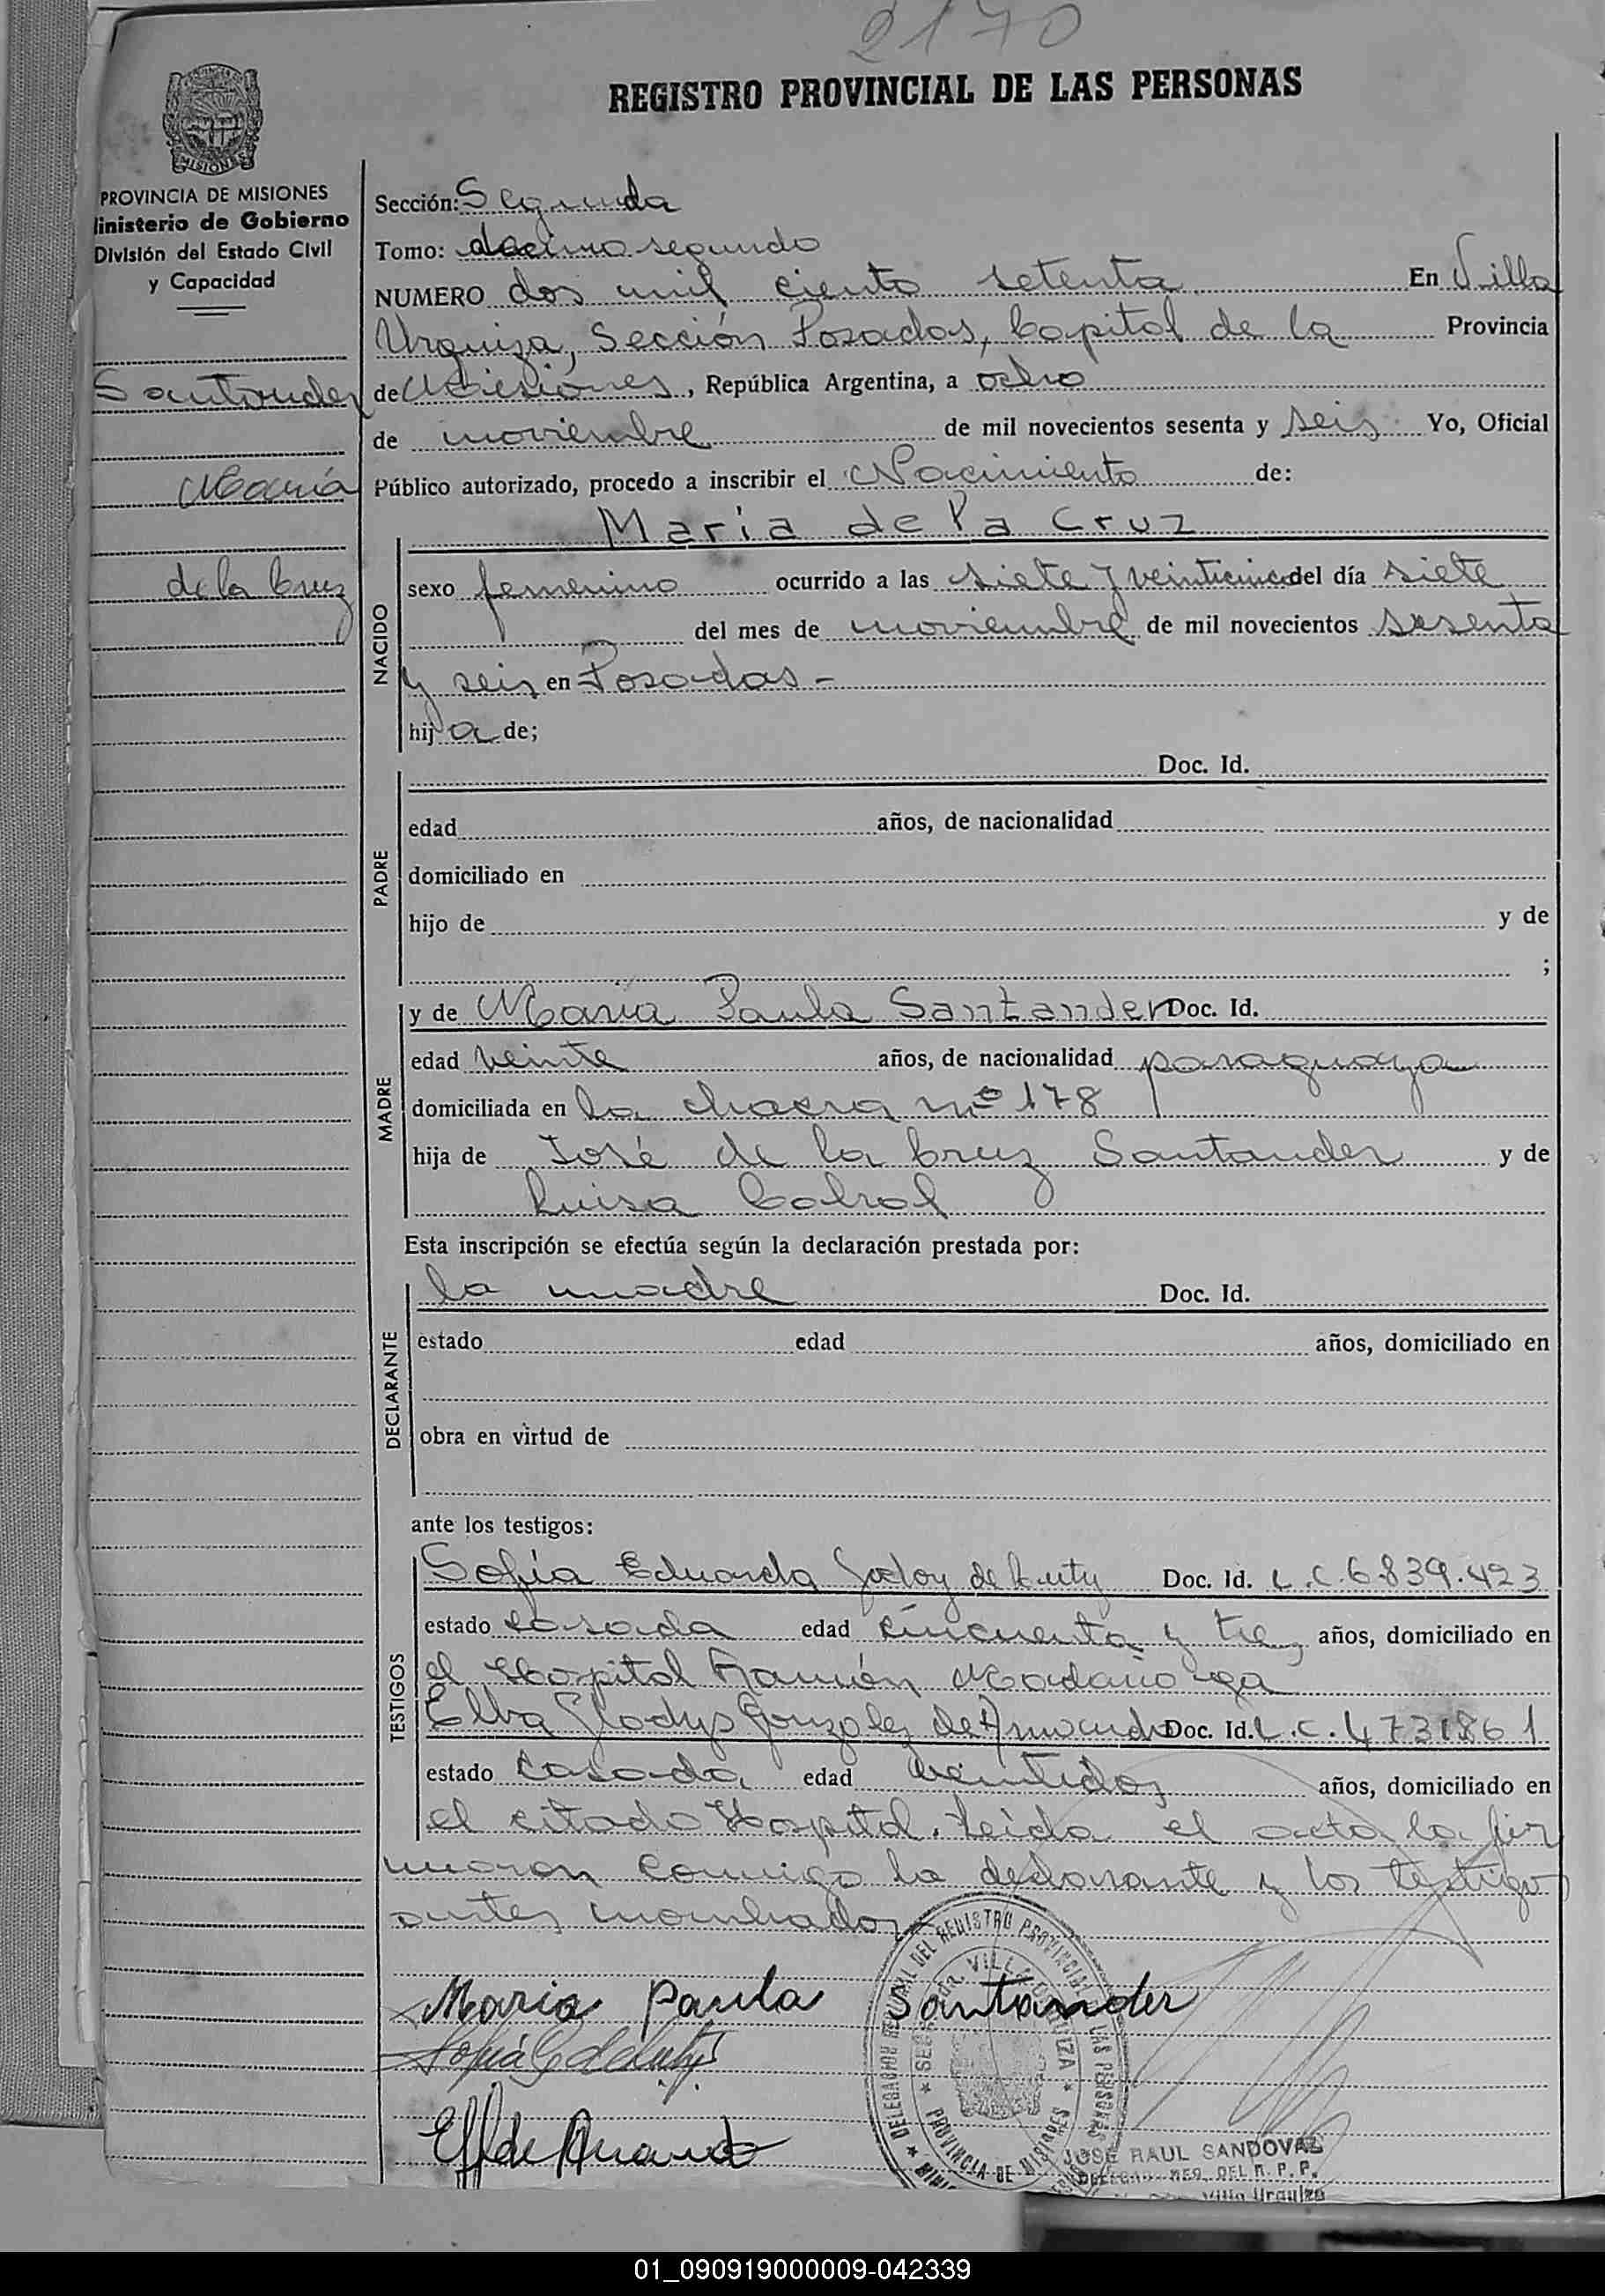 2170
REGISTRO PROVINCIAL DE LAS PERSONAS
MISIONES
PROVINCIA DE MISIONES
Ministerio de Gobierno
División del Estado Civil
y Capacidad
Santander
María
de la Cruz
Sección: Segunda
Tomo: decimo segundo
NUMERO dos mil ciento setenta En Villa
Urquiza, Sección Posadas, Capital de la Provincia
de Misiones, República Argentina, a ocho
de noviembre de mil novecientos sesenta y seis Yo, Oficial
Público autorizado, procedo a inscribir el Nacimiento de:
Maria de la Cruz
NACIDO
sexo femenino ocurrido a las siete y veinticinco del día siete
del mes de noviembre de mil novecientos sesenta
y seis en Posadas-
hija de;
PADRE
Doc. Id.
edad años, de nacionalidad
domiciliado en
hijo de y de
;
MADRE
y de María Paula Santander Doc. Id.
edad veinte años, de nacionalidad paraguaya
domiciliada en la chacra nº 178
hija de José de la Cruz Santander y de
Luisa Cabral
Esta inscripción se efectúa según la declaración prestada por:
DECLARANTE
la madre Doc. Id.
estado edad años, domiciliado en
obra en virtud de
ante los testigos:
TESTIGOS
Sofía Eduarda Godoy de Doc. Id. L.C. 6.839.423
estado casada edad cincuenta y tres años, domiciliado en
el Hospital Ramón Madariaga
Elba Gladys Gonzalez de Doc. Id. L.C. 4731861
estado casada edad veintidos años, domiciliado en
el citado Hospital. Leída el acta la fir
maron conmigo la declarante y los testigos
antes nombrados
Maria Paula Santander
DELEGACION DEL REGISTRO PROVINCIAL DE LAS PERSONAS
VILLA URQUIZA
PROVINCIA DE MISIONES
JOSE RAUL SANDOVAL
DELEGADO REG. DEL R. P. P.
Villa Urquiza
01_090919000009-042339